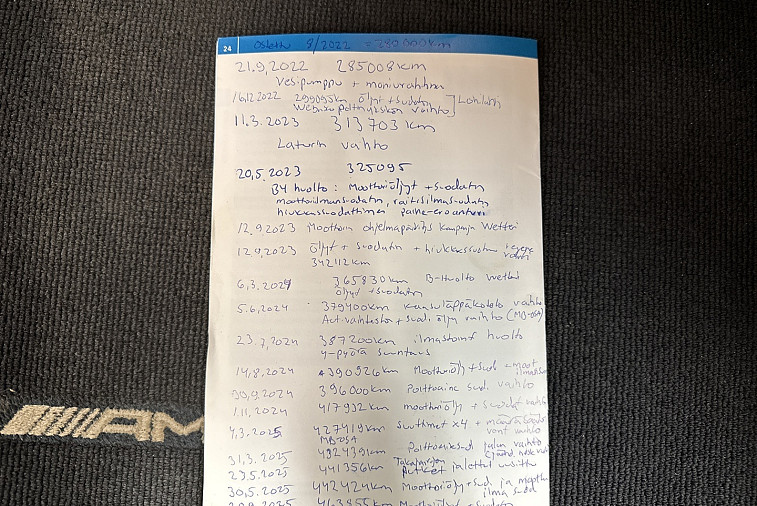 24 Ostettu 8/2022 = 280 000km
21.9,2022 285008km
Vesipumppu + moniurahihna
16.12.2022 299095km öljyt + suodatin
Webasto polttoyksikön vaihto
11.3.2023 313703 km
Laturin vaihto
20,5.2023 325095
B4 huolto: Moottoriöljyt + suodatin
moottoriilmansuodatin, raitisilmasuodatin
hiukkassuodattimen paine-eroanturi
12.9.2023 Moottorin ohjelmapäivitys kampanja Wetteri
12.9.2023 öljyt + suodatin +
342112km
6,3.2024 365830km B-Huolto Wetteri
öljyt + suodatin
5.6.2024 379400km kaasuläppäkotelo vaihto
Aut.vaihteisto + suod. öljyn vaihto (MB-OSA)
23.7,2024 387200km ilmastoinf huolto
4-pyörä suuntaus
14,8.2024 390526km Moottoriöljy + suod +moot
30,9.2024 396000km Polttoaine suod. vaihto
1.11,2024 417932km moottoriöljy + suodat vaihto
4,3.2025 427419km suuttimet x4 +
vent vaihto
MB-OSA
31,3.2025 432439km Polttoainesuod jalan vaihto
23.5.2025 441356km Takajarrujen
putket ja letkut uusittu
30,5.2025 442424km moottoriöljy + suod ja moottori
ilma suod
463855km
AM